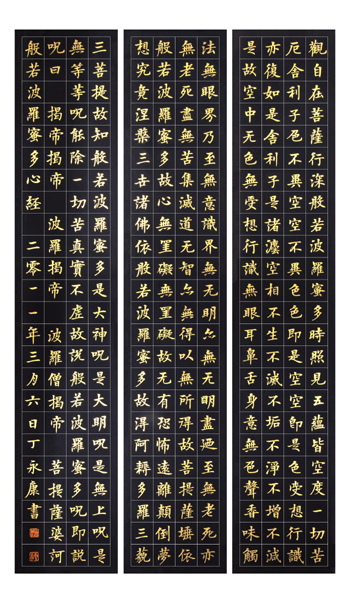 觀自在菩薩行深般若波羅蜜多時照見五蘊皆空度一切苦
厄舍利子色不異空空不異色色即是空空即是色受想行識
亦復如是舍利子是諸法空相不生不滅不垢不淨不增不減
是故空中无色無受想行識無眼耳鼻舌身意無色聲香味觸
法無眼界乃至無意識界無无明亦無无明盡廼至無老死亦
無老死盡無苦集滅道无智亦無得以無所得故菩提薩埵依
般若波羅蜜多故心無罣礙無罣礙故無有恐怖遠離顛倒夢
想究竟涅槃三世諸佛依般若波羅蜜多故得阿耨多羅三藐
三菩提故知般若波羅蜜多是大神呪是大明呪是無上呪是
無等等呪能除一切苦真實不虛故說般若波羅蜜多呪即說
呪曰 揭帝揭帝 波羅揭帝 波羅僧揭帝 菩提薩婆河
般若波羅蜜多心經 二零一一年三月六日丁永康書